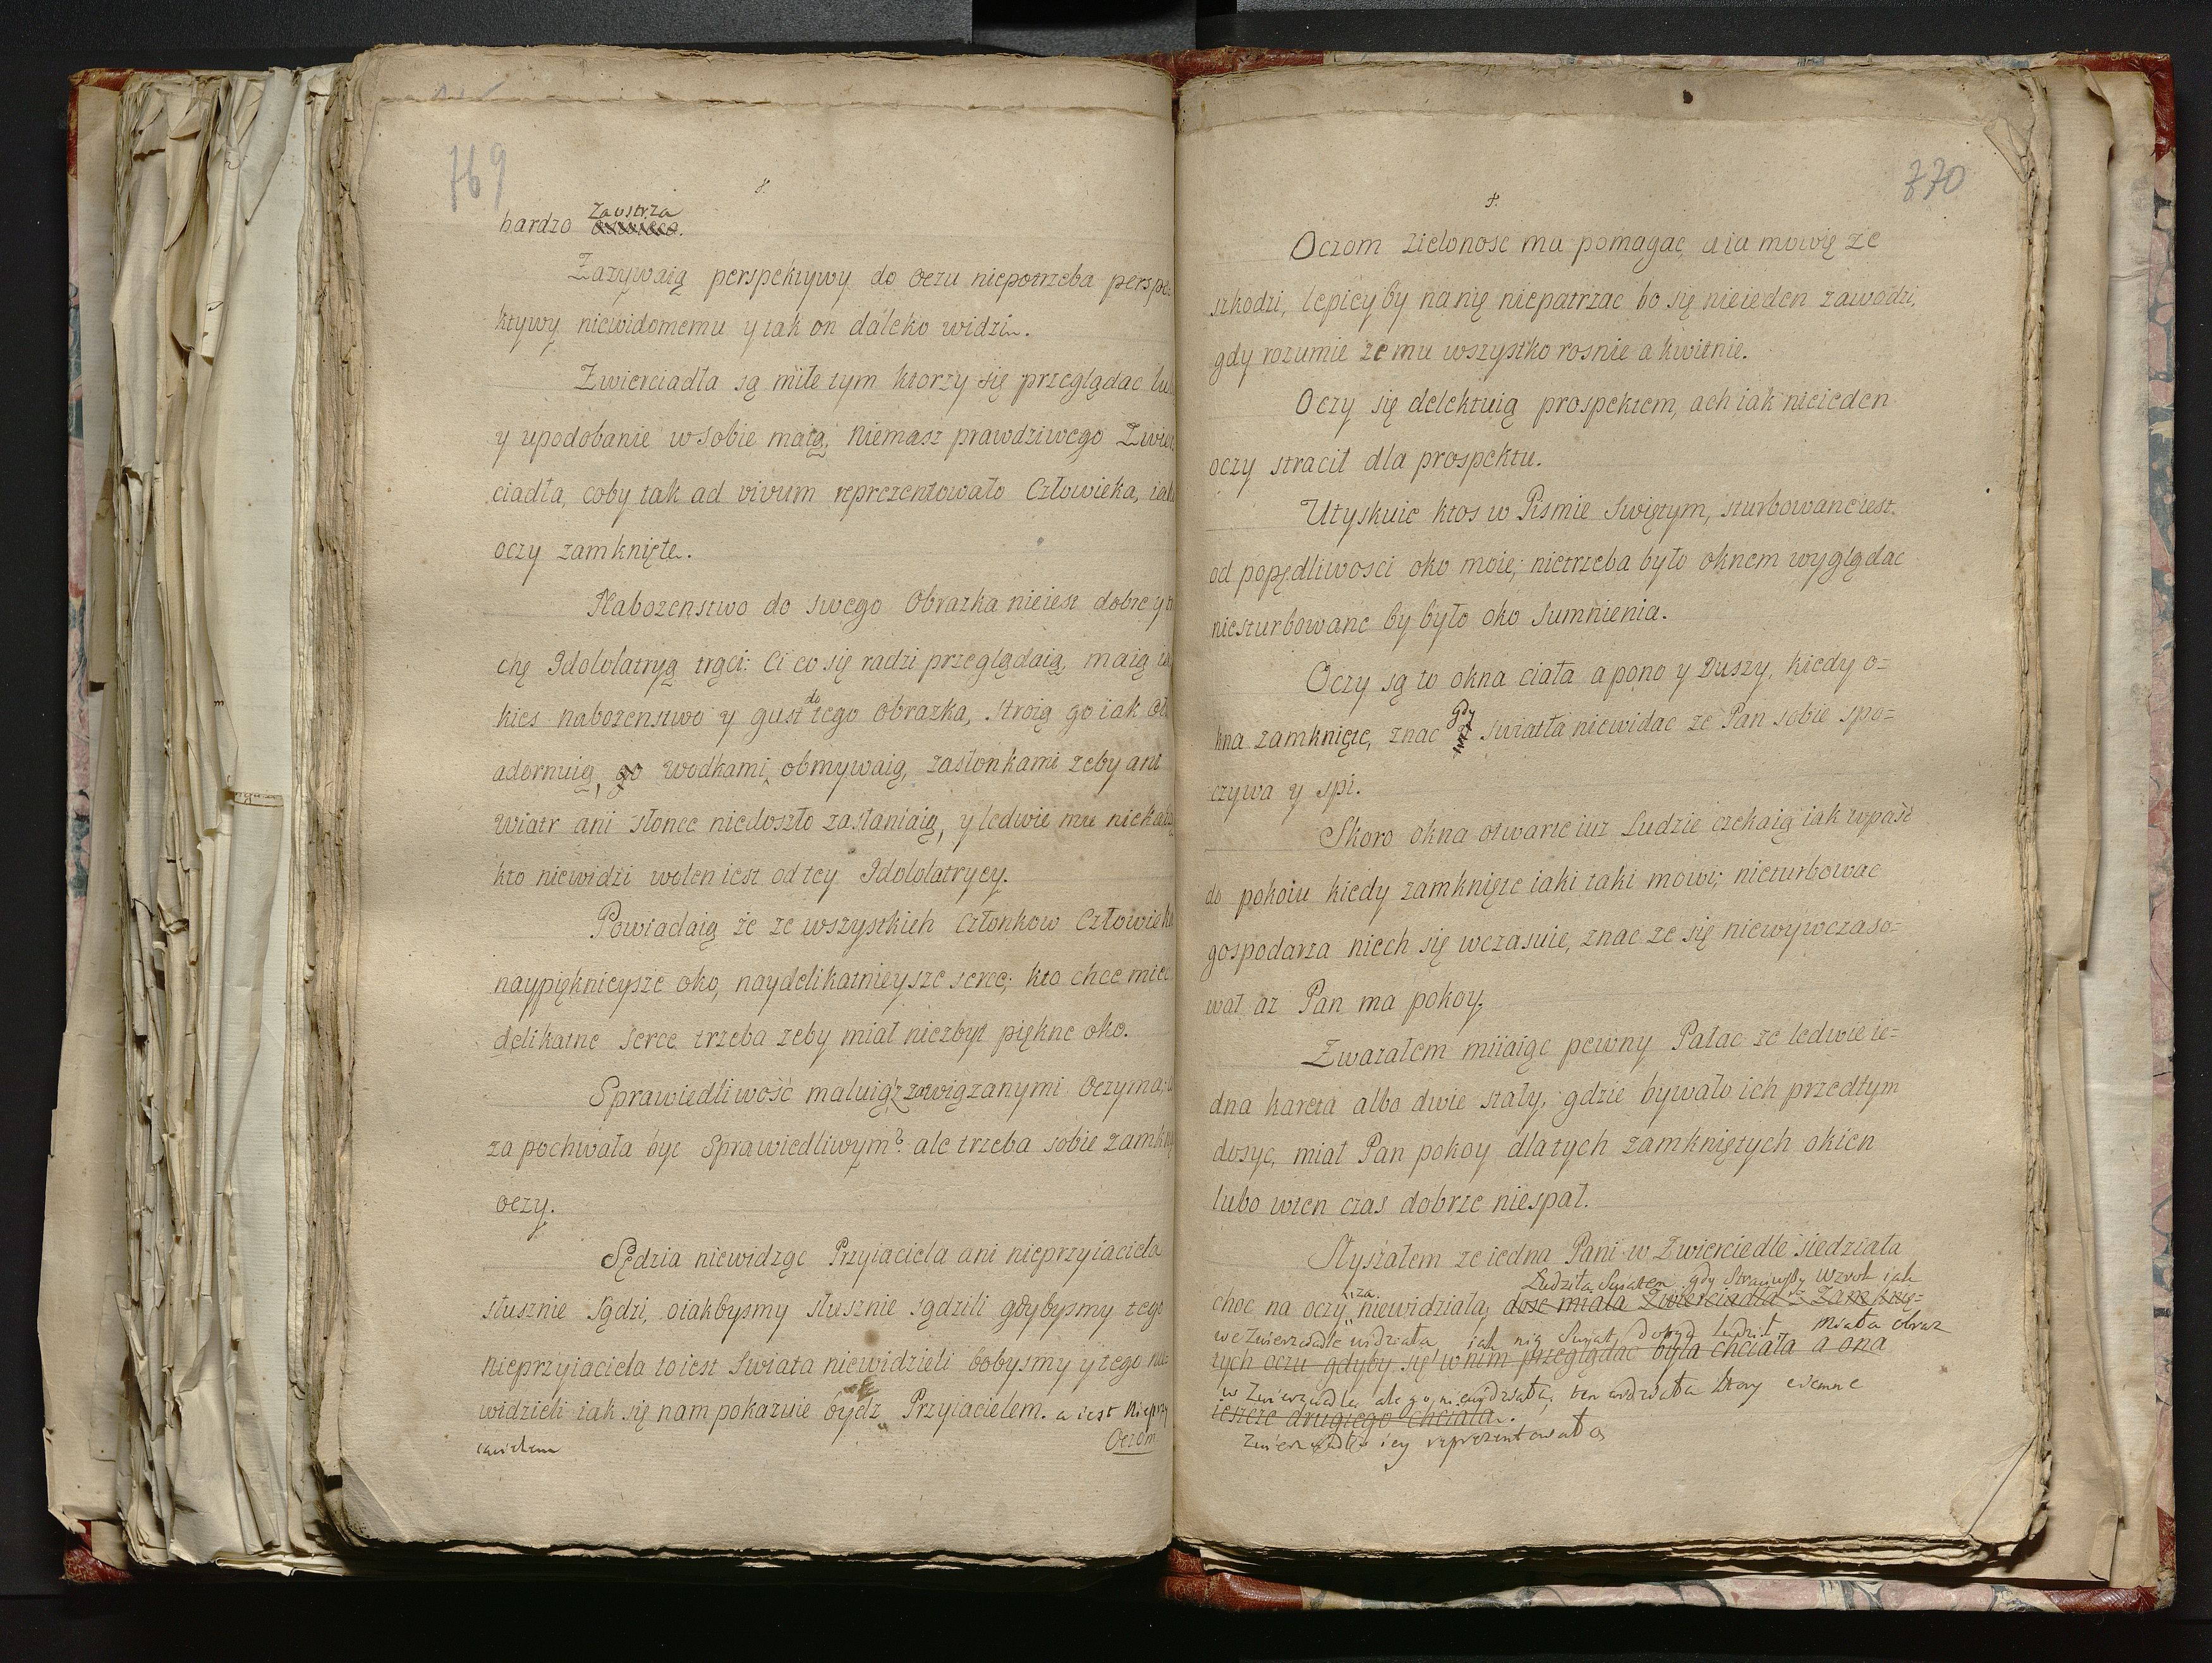 769
8.
bardzo Zaostrza
Zazywaią perspektywy do oczu niepotrzeba perspe-
ktywy niewidomemu y tak on daleko widzi.
Zwierciadła są miłe tym ktorzy się przeglądac lu
y upodobanie w sobie maią, Niemasz prawdziwego Zwier
ciadła, coby tak ad vivum reprezentowało Człowieka, iak
oczy zamknięte.
Nabozenstwo do swego Obrazka nieiest dobre y
chę Idololatryą trąci: Ci co się radzi przeglądaią, maią ia
kies nabozenstwo y gust do tego obrazka, stroią go iak Oł
adornuią, go wodkami obmywaią, zasłonkami zeby ani
Wiatr ani słonce niedoszło zasłaniaią, y ledwie mu niekadzą
kto niewidzi wolen iest od tey Idololatryey.
Powiadaią że ze wszystkich Członkow Człowieka
naypięknieysze oko, naydelikatnieysze serce; kto chce miec
delikatne serce trzeba zeby miał niezbyt piękne oko.
Sprawiedliwość maluią z zawiązanymi Oczyma,
za pochwała byc Sprawiedliwym? ale trzeba sobie zamkn
oczy.
Sędzia niewidząc Przyiaciela ani nieprzyiaciela
słusznie sądzi, oiakbysmy słusznie sądzili gdybysmy tego
Nieprzyiaciela to iest Swiata niewidzieli bobysmy y tego nie
widzieli iak się nam pokazuie bydz Przyiacielem. a iest Nieprzy
iacielem
Oczom
770
8.
Oczom zieloność ma pomagac, a ia mowię ze
szkodzi, lepiey by na nię niepatrzac bo się nieieden zawodzi,
gdy rozumie ze mu wszystko rosnie a kwitnie.
Oczy się delektuią prospektem, ach iak nieieden
oczy stracił dla prospektu.
Utyskuie ktos w Pismie Swiętym, sturbowane iest
od popędliwosci oko moie; nietrzeba było oknem wyglądac
niesturbowane by było oko Sumnienia.
Oczy są to okna ciała a pono y Duszy, kiedy o-
kna zamknięte, znac gdy swiatła niewidac ze Pan sobie spo-
czywa y spi.
Skoro okna otwarte iuz Ludzie czekaią iak wpaść
do pokoiu kiedy zamknięte iaki taki mowi; nieturbowac
gospodarza niech się wczasuie, znac ze się niewywczaso-
wał az Pan ma pokoy.
Zwazałem miiaiąc pewny Pałac ze ledwie ie-
dna kareta albo dwie stały, gdzie bywało ich przedtym
dosyc, miał Pan pokoy dla tych zamkniętych okien
lubo wten czas dobrze niespał.
Słyszałem ze iedna Pani w Zwierciedle siedziała
Łudziła Swiatem gdy Straciwszy Wzrok iak
choc na oczy niewidziała, dosc miała Zwierciadła z Zamknię-
we Zwierciadle widziała iak nią Swiat dotąd łudził, Miała obraz
tych oczu gdyby się w nim przeglądac była chciała a ona
w Zwierciadle ale go niewidziała, ten widziała ktory ciemne
ieszcze drugiego chciała.
Zwierciadło iey reprezentowało